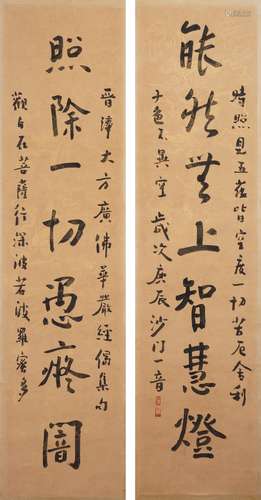 時照見五蘊皆空度一切苦厄舍利
能然無上智慧燈
子色不異空歲次庚辰沙門一音
晉譯大方廣佛華嚴經偈集句
照除一切愚癡闇
觀自在菩薩行深波若波羅密多